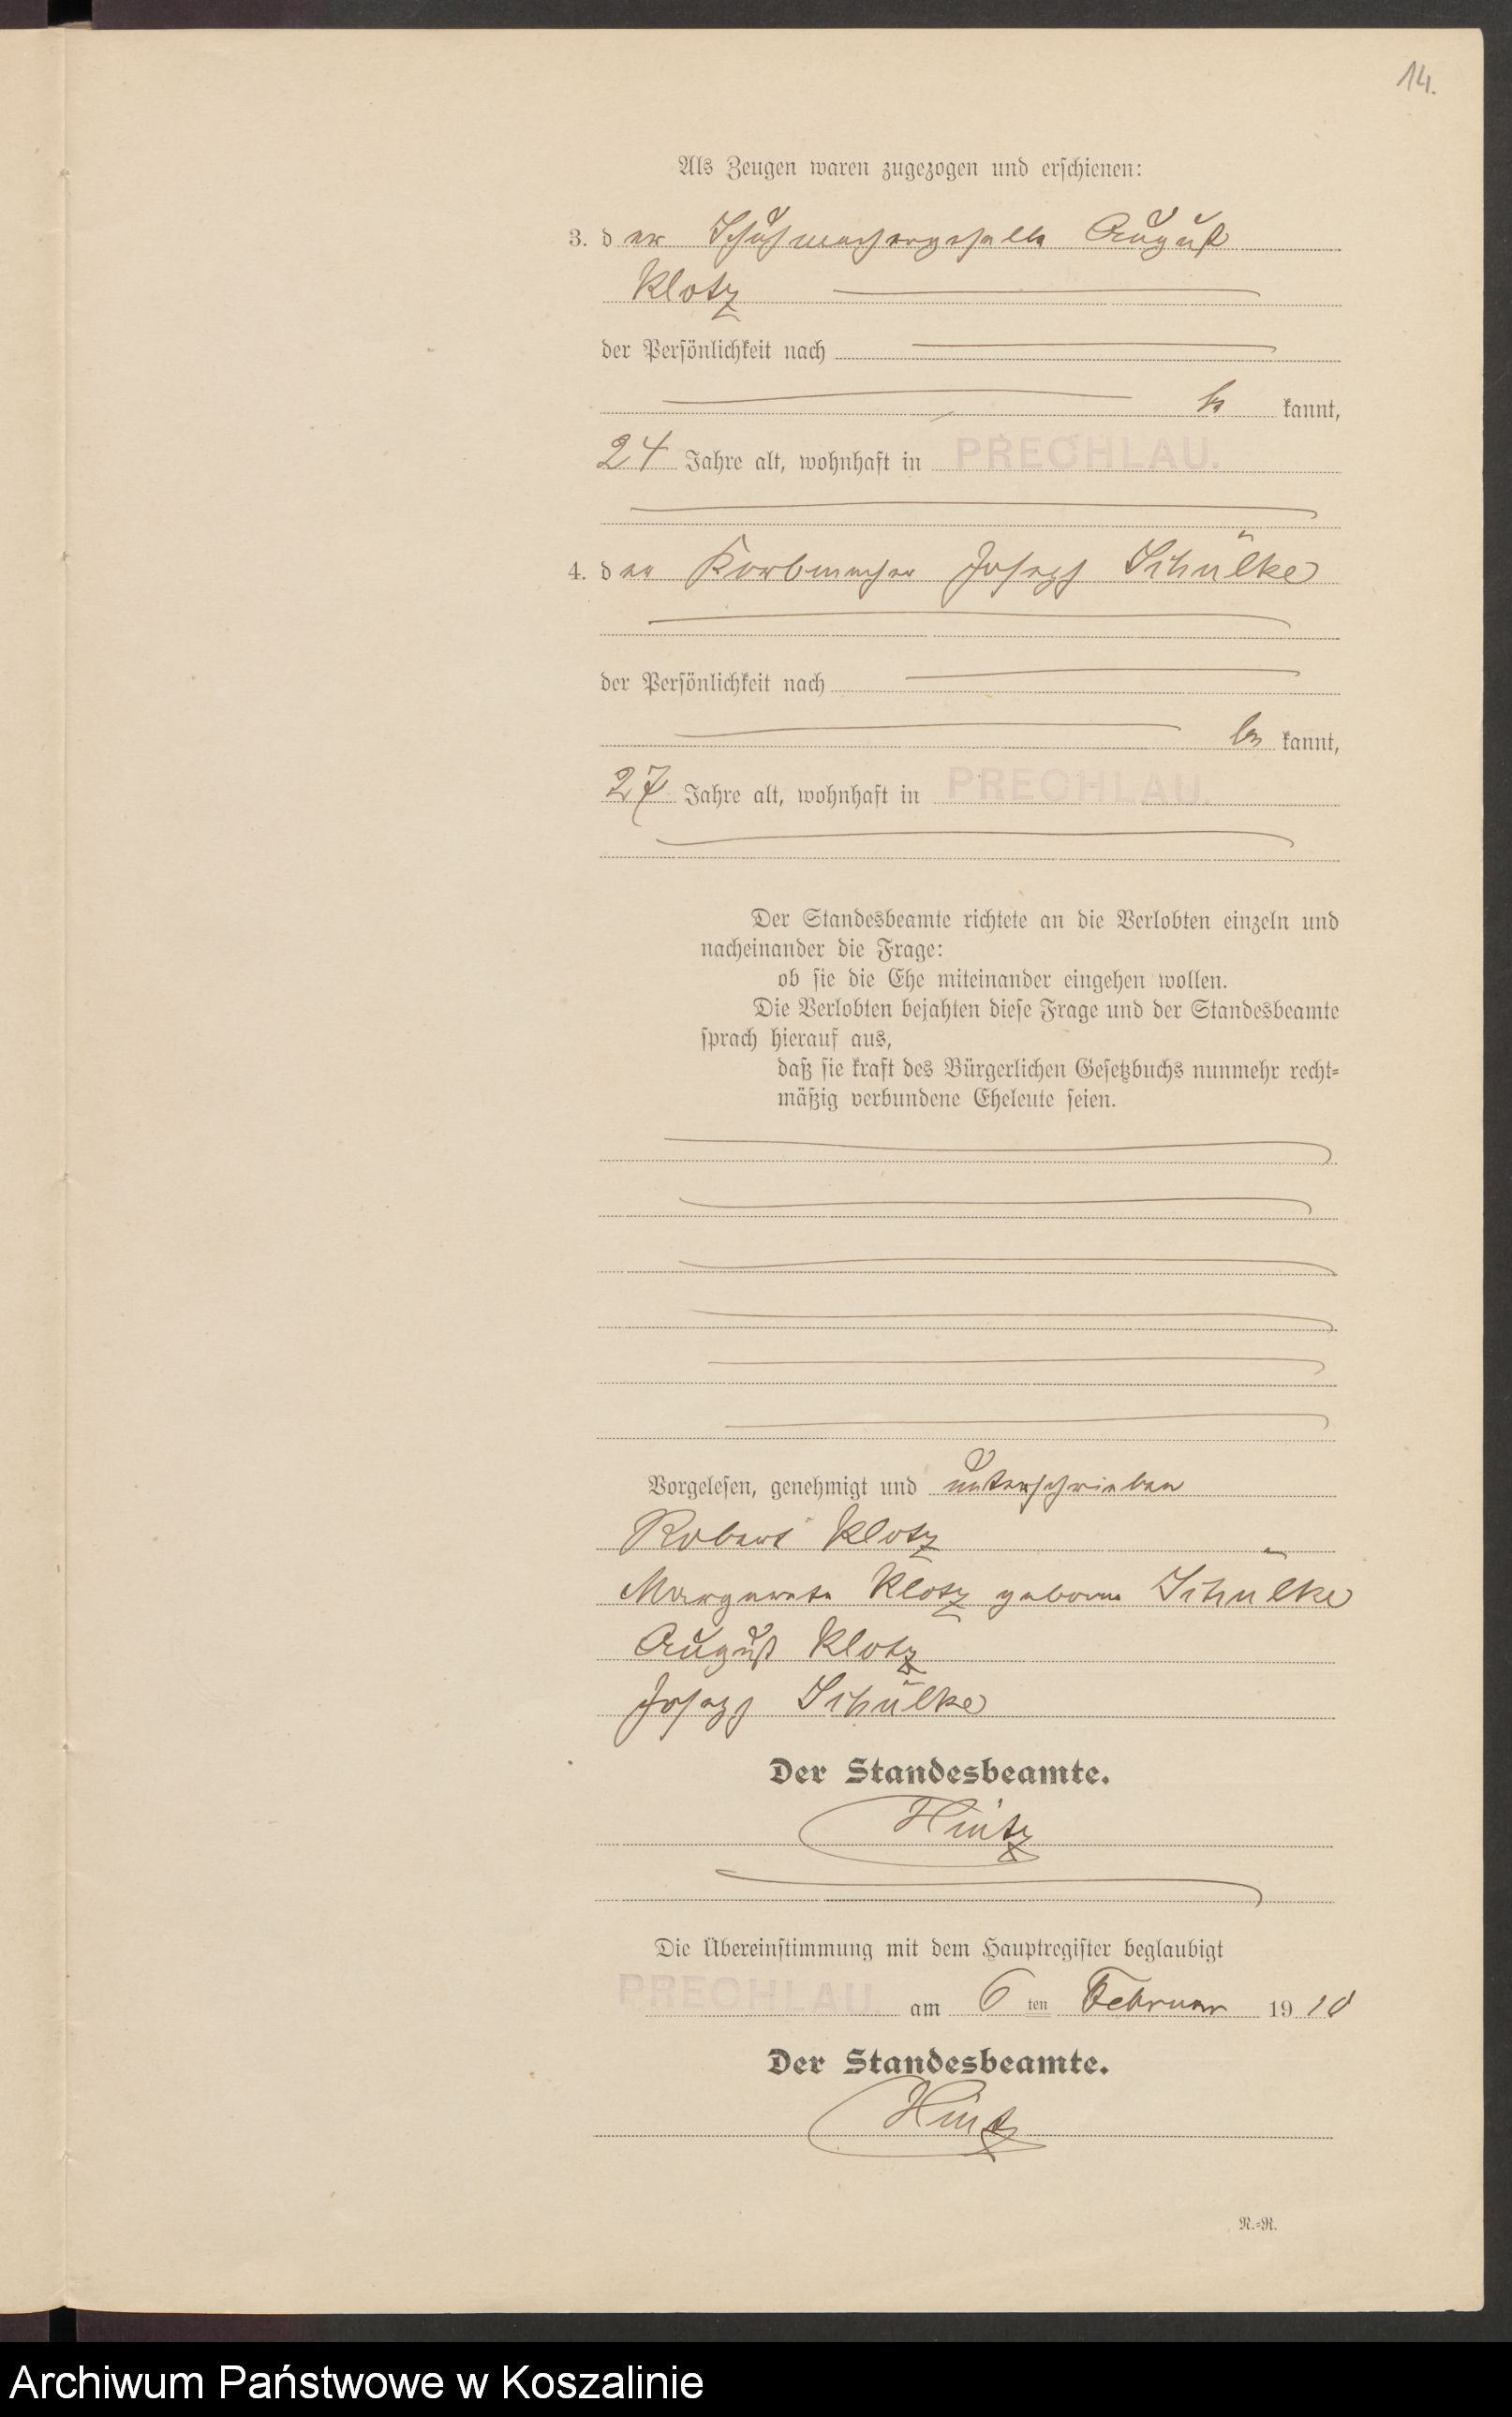 14.
Als Zeugen waren zugezogen und erschienen:
3. der Schuhmachergeselle August
Klotz
der Persönlichkeit nach
be kannt,
24 Jahre alt, wohnhaft in PRECHLAU.
4. der Korbmacher Joseph Schülke
der Persönlichkeit nach
be kannt,
27 Jahre alt, wohnhaft in PRECHLAU.
Der Standesbeamte richtete an die Verlobten einzeln und
nacheinander die Frage:
ob sie die Ehe miteinander eingehen wollen.
Die Verlobten bejahten diese Frage und der Standesbeamte
sprach hierauf aus,
daß sie kraft des Bürgerlichen Gesetzbuchs nunmehr recht-
mäßig verbundene Eheleute seien.
Vorgelesen, genehmigt und unterschrieben
Robert Klotz
Margarete Klotz geborne Schülke
August Klotz
Joseph Schülke
Der Standesbeamte.
Hintz
Die Übereinstimmung mit dem Hauptregister beglaubigt
PRECHLAU. am 6 ten Februar 19 10
Der Standesbeamte.
Hintz
N.-R.
Archiwum Państwowe w Koszalinie